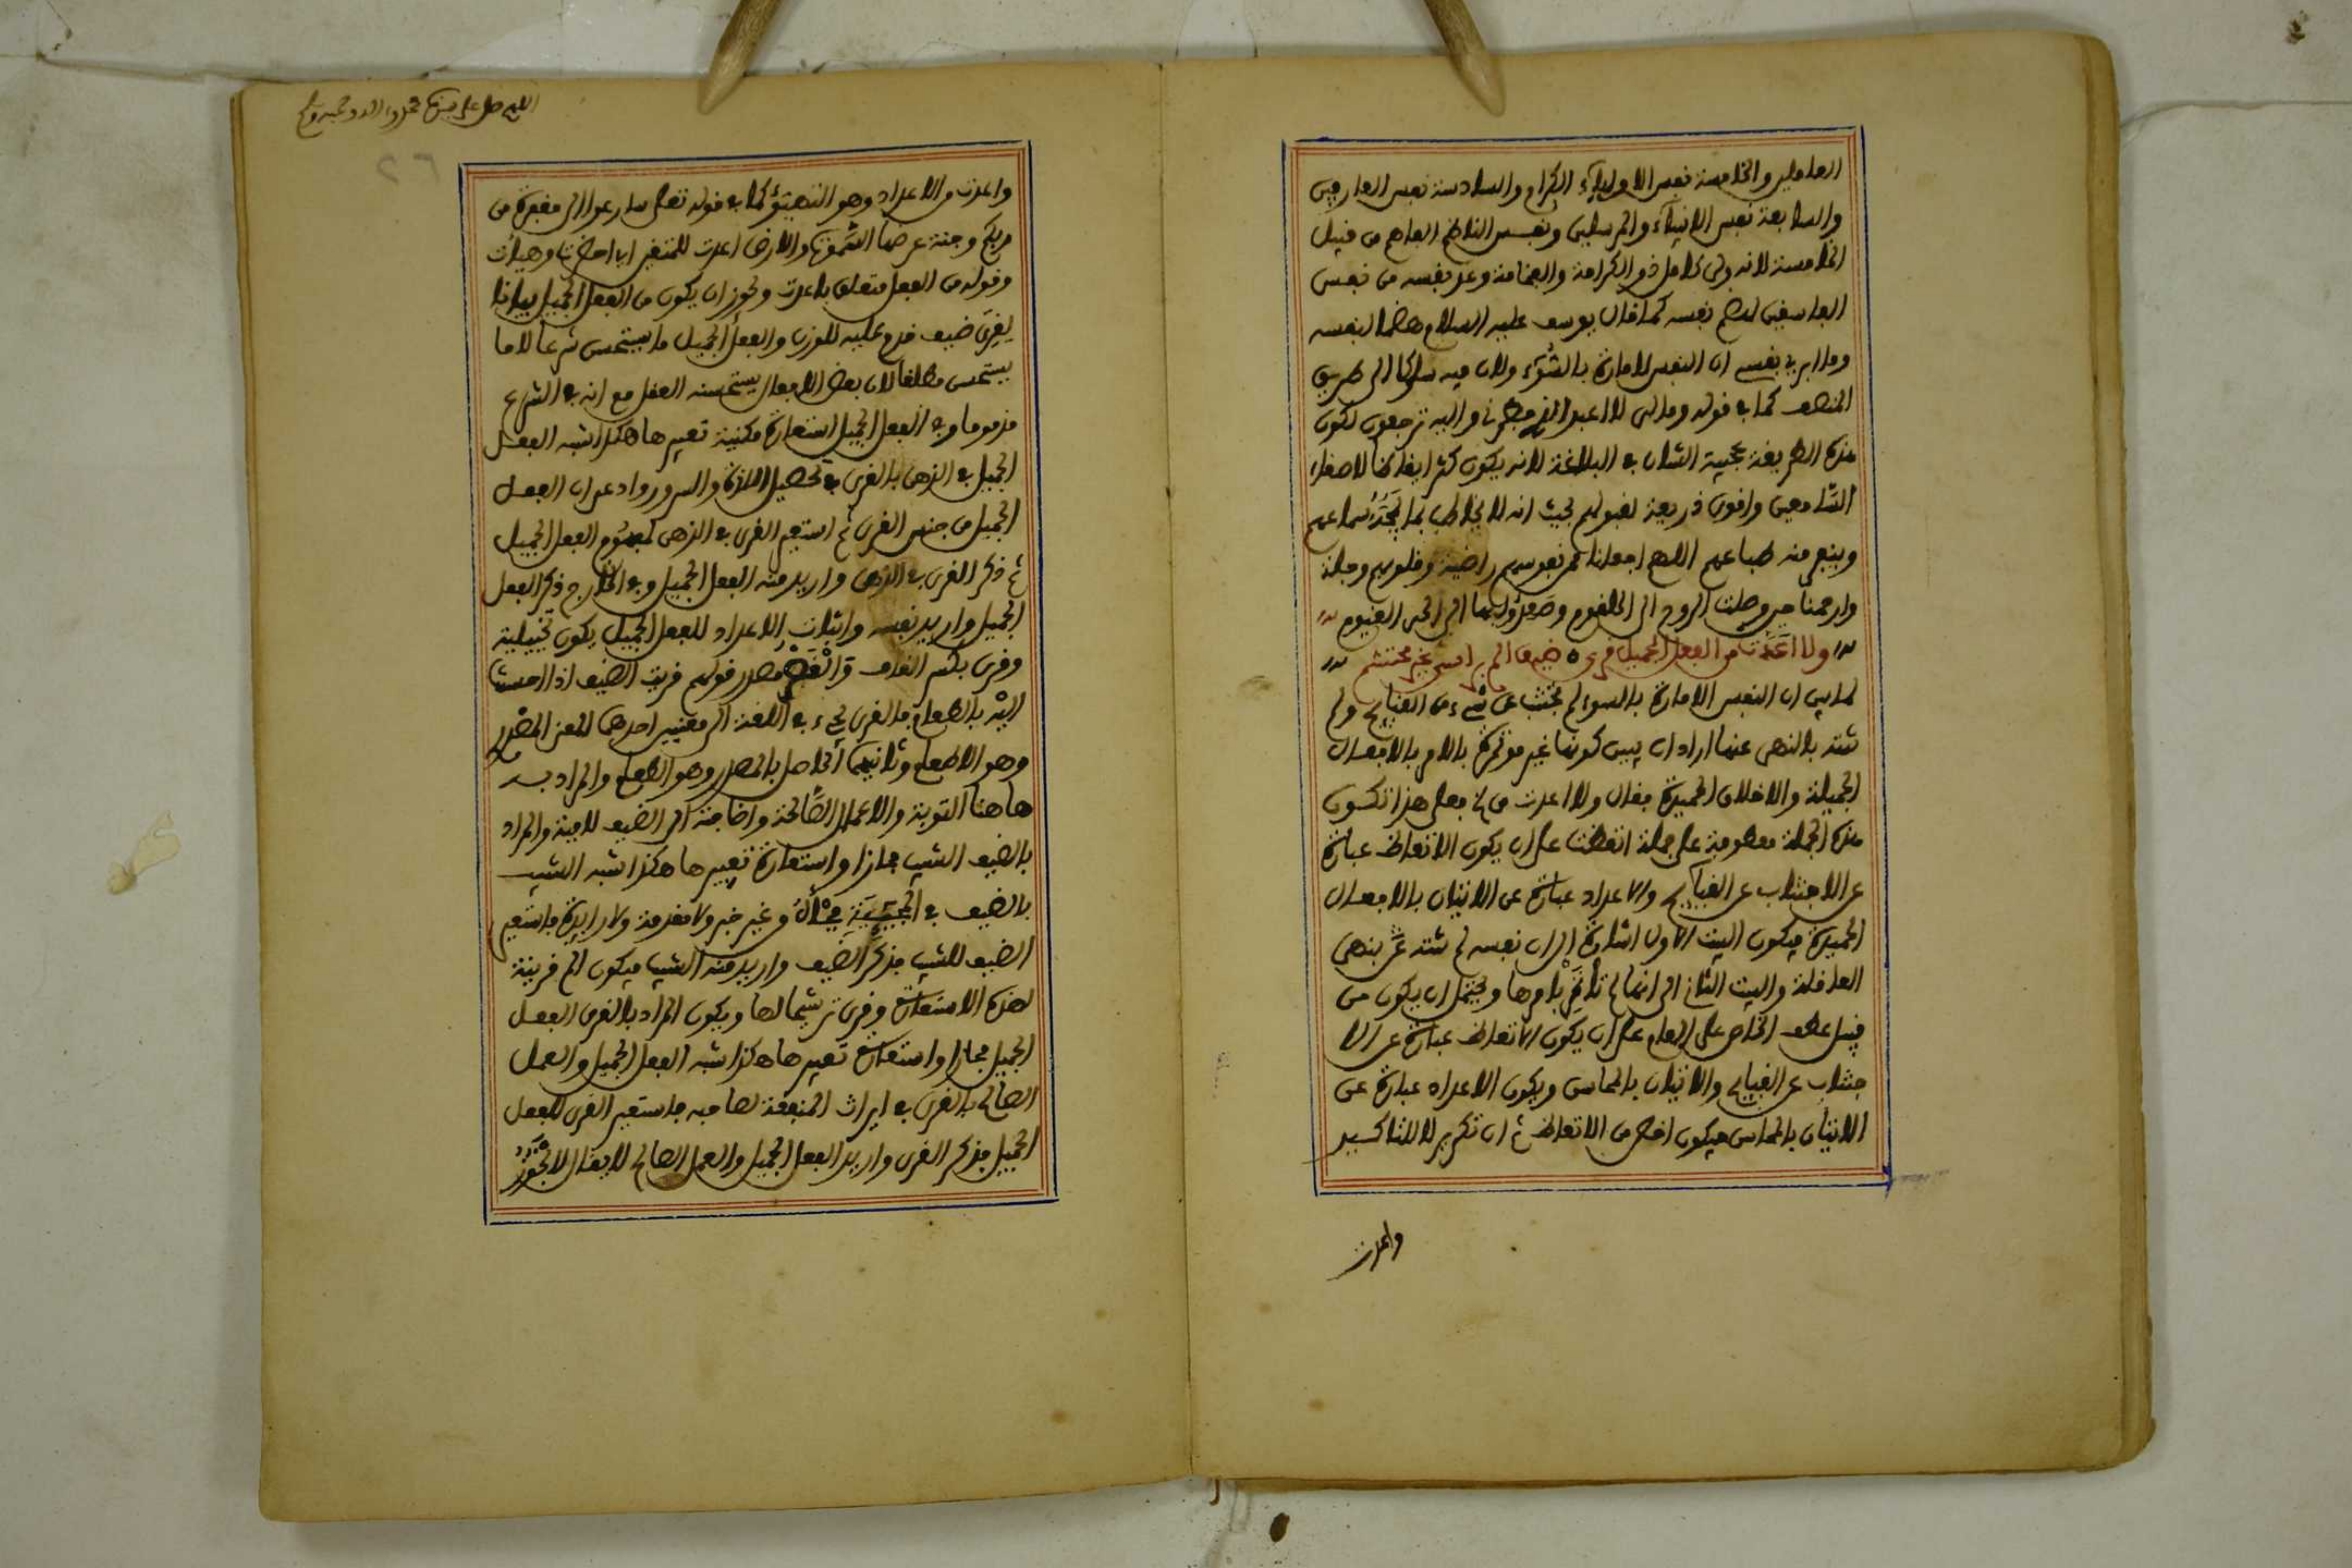 العاملين والخامسة نفس الاولياء الكرام والسادسة نفس العارفين
والسابعة نفس الانبياء والمرسلين ونفس الناظم الفاهم من قبيل
الخامسة لانه ولي كامل ذو الكرامة والفخامة وعد نفسه من نفس
الفاسقين لهضم نفسه كما قال يوسف عليه السلام هضما لنفسه
وما ابرئ نفسي ان النفس لامارة بالسوء ولان فيه سلوكا الى طريق
المنصف كما في قوله ومالي لا اعبد الذي فطرني واليه ترجعون لكون
هذه الطريقة عجيبة الشان في البلاغة لانه يكون اكثر ايقاظا لاصغاء
السامعين واقوى ذريعة لقبولهم بحيث انه لا يخاطب بما اسماعهم
وينفر منه طباعهم اللهم اجعلنا ممن نفوسهم راضية وقلوبهم وجلة
وارحمنا حين وصلت الروح الى الحلقوم الى الحي القيوم
ولا اعدت من الفعل الجميل قرى ه ضيف الم براسي غير محتشم
لما بين ان النفس الامارة بالسوء لم تجتنب عن شيء من القبايح ولم
تنته بالنهي عنها اراد ان يبين كونها غير مؤتمرة بالامر بالافعال
الجميلة والاخلاق الحميدة فقال ولا اعدت الخ فعلى هذا تكون
هذه الجملة معطوفة على جملة اتعظت على ان يكون الاتعاظ عبارة
عن الاجتناب عن القبايح والاعداد عبارة عن الاتيان بالافعال
الحميدة فيكون البيت الاول اشارة الى ان نفسه لم تنته عن نهي
العاقلة والبيت الثاني الى انها لم تأتمر بامرها ويحتمل ان يكون من
قبيل عطف الخاص على العام على ان يكون الاتعاظ عبارة عن الا
جتناب عن القبايح والاتيان بالمحاسن ويكون الاعداد عبارة عن
الاتيان بالمحاسن فيكون اخص من الاتعاظ ثم ان تكرير لا للتاكيد
واعدت
اللهم صل على محمد واله وصحبه وسلم
٢٦
واعدت من الاعداد وهو التهيئو كما في قوله تعلى سارعوا الى مغفرة من
ربكم وجنة عرضها السموات والارض اعدت للمتقين اي احضرت وهيأت
وقوله من الفعل متعلق باعدت ويجوز ان يكون من الفعل الجميل بيانا
لقرى ضيف قدم عليه للوزن والفعل الجميل ما يستحسن شرعا لا ما
يستحسن مطلقا لان بعض الافعال يستحسنه العقل مع انه في الشرع
مذموما وفي الفعل الجميل استعارة مكنية تقريرها هكذا شبه الفعل
الجميل في الذهن بالقرى في تحصيل اللذة والسرور وادعى ان الفعل
الجميل من جنس القرى ثم استعير القرى في الذهن لمفهوم الفعل الجميل
ثم ذكر القرى في الذهن واريد منه الفعل الجميل وفي الخارج ذكر الفعل
الجميل واريد نفسه واثبات الاعداد للفعل الجميل يكون تخييلية
وقرى بكسر القاف والقصر مصدر قولهم قريت الضيف اذا احسنت
اليه بالطعام فالقرى يجيء في اللغة الى معنيين احدهما المعنى المصدر
وهو الاطعام وثانيهما الحاصل بالمصدر وهو الطعام والمراد به
هاهنا التوبة والاعمال الصالحة واضافته الى الضيف لامية والمراد
بالضيف الشيب مجازا واستعارة تقريرها هكذا شبه الشيب
بالضيف في وغير خبر ولا مقدمة ولا فاستعير
الضيف للشيب فذكر الضيف واريد منه الشيب فيكون الم قرينة
لهذه الاستعارة وقرى ترشيحا لها ويكون المراد بالقرى الفعل
الجميل مجازا واستعارة تقريرها هكذا شبه الفعل الجميل والعمل
الصالح بالقرى في ايراث المنفعة لصاحبه فاستعير القرى للفعل
الجميل فذكر القرى واريد الفعل الجميل والعمل الصالح لا يقال لا يجوز